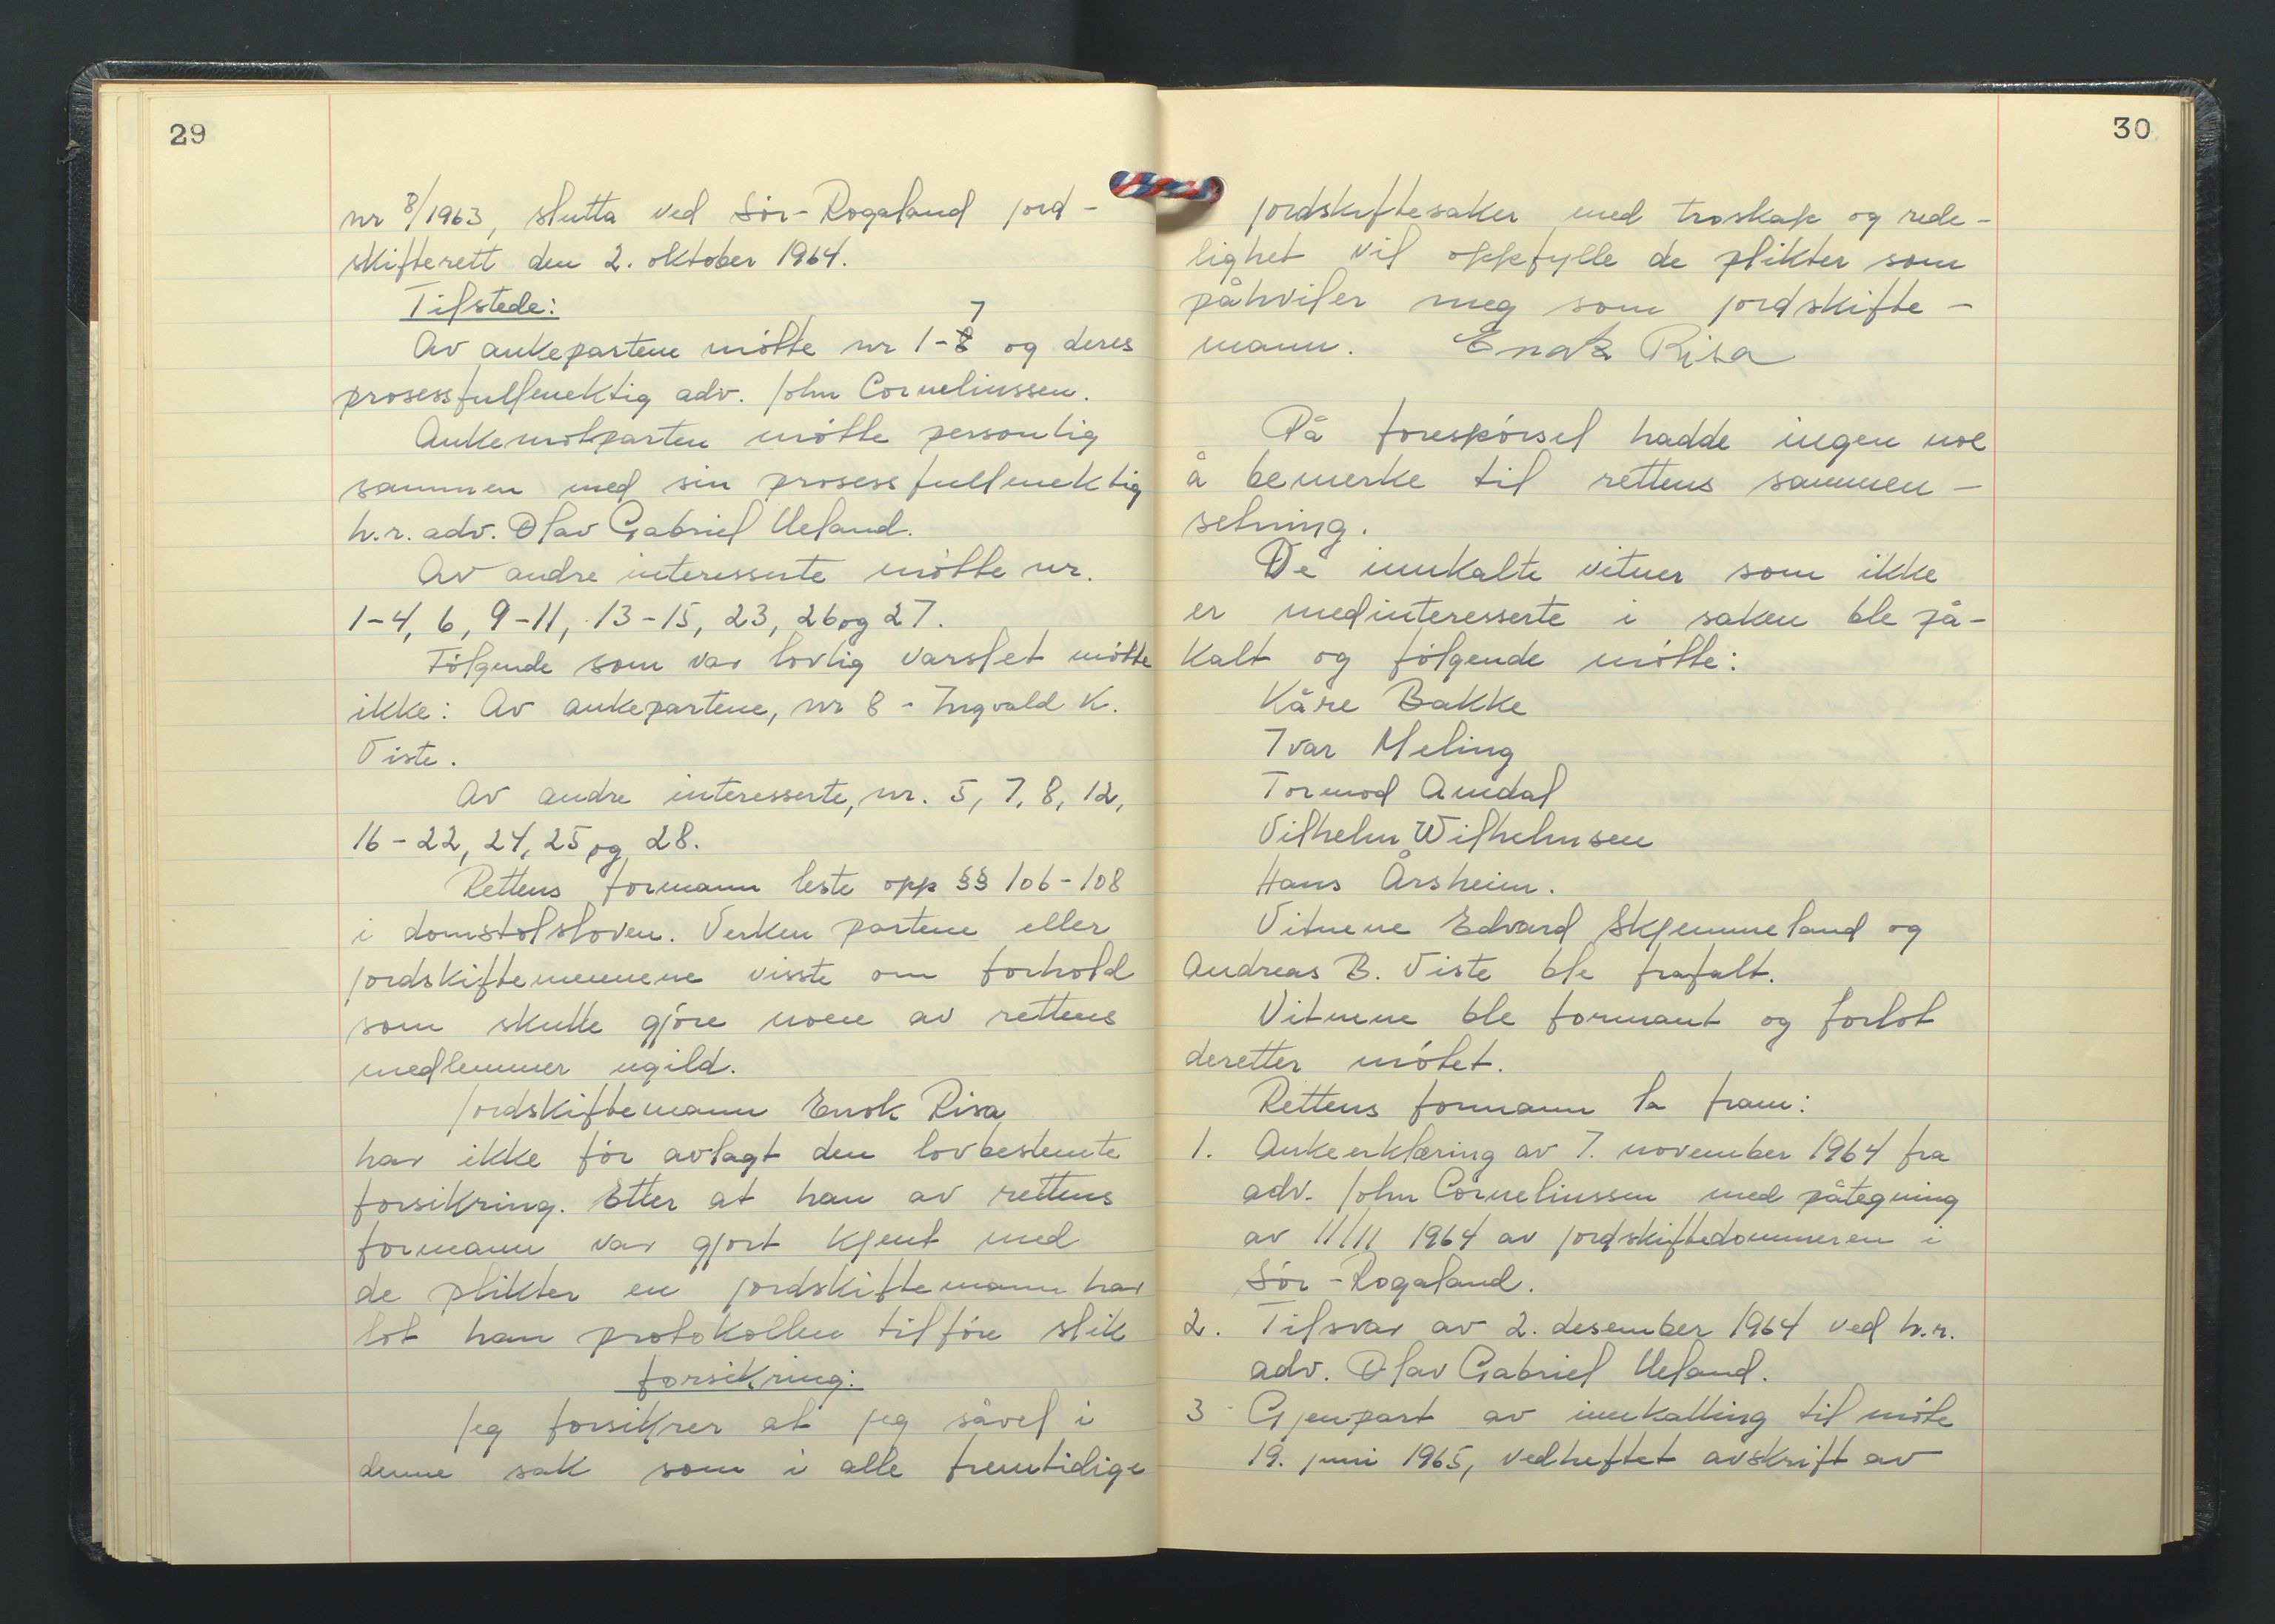 29
nr 8/1963, slutta ved Sør-Rogaland jord-
skifterett den 2. oktober 1964.
Tilstede:
7
Av ankepartene møtte nr 1-8 og deres
prosessfullmektig adv. John Corneliussen.
Ankemotparten møtte personlig
sammen med sin prosessfullmektig
h.r. adv. Olav Gabriel Ueland.
Av andre interesserte møtte nr.
1-4, 6, 9-11, 13-15, 23, 26 og 27.
Følgende som var lovlig varslet møtte
ikke: Av ankepartene, nr 8 - Ingvald K.
Viste.
Av andre interesserte, nr. 5, 7, 8, 12,
16-22, 24, 25 og 28.
Rettens formann leste opp §§ 106-108
i domstolsloven. Verken partene eller
jordskiftemennene visste om forhold
som skulle gjøre noen av rettens
medlemmer ugild.
Jordskiftemann Enok Risa
har ikke før avlagt den lovbestemte
forsikring. Etter at han av rettens
formann var gjort kjent med
de plikter en jordskiftemann har
lot han protokollen tilføre slik
forsikring:
Jeg forsikrer at jeg såvel i
denne sak som i alle fremtidige
30
jordskiftesaker med troskap og rede-
lighet vil oppfylle de plikter som
påhviler meg som jordskifte-
mann. Enok Risa
På forespørsel hadde ingen noe
å bemerke til rettens sammen-
setning.
De innkalte vitner som ikke
er medinteresserte i saken ble på-
kalt og følgende møtte:
Kåre Bakke
Ivar Meling
Tormod Amdal
Vilhelm Wilhelmsen
Hans Årsheim.
Vitnene Edvard Skjemmeland og
Andreas B. Viste ble frafalt.
Vitnene ble formant og forlot
deretter møtet.
Rettens formann la fram:
1. Ankeerklæring av 7. november 1964 fra
adv. John Corneliussen med påtegning
av 11/11 1964 av jordskiftedommeren i
Sør-Rogaland.
2. Tilsvar av 2. desember 1964 ved h.r.
adv. Olav Gabriel Ueland.
3. Gjenpart av innkalling til møte
19. juni 1965, vedheftet avskrift av